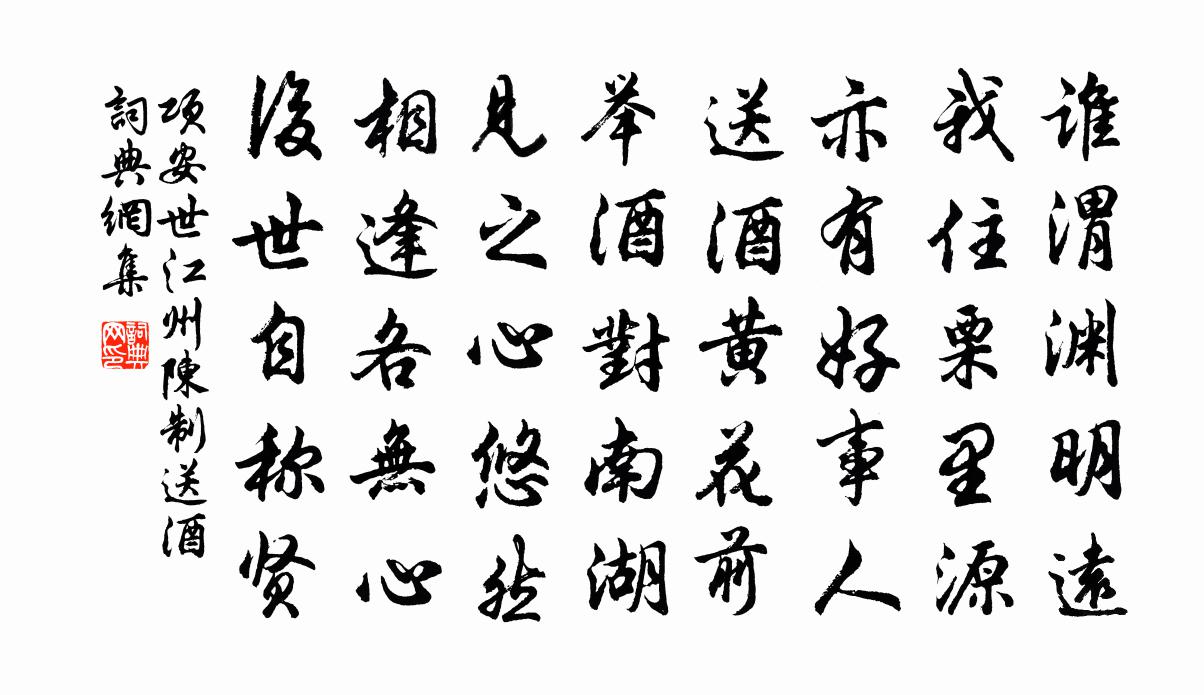 谁渭渊明遠
我住栗里源
亦有好事人
送酒黄花前
举酒對南湖
見之心悠然
相逢各無心
後世自称贤
項安世江州陳制送酒
詞典網集
詞典网印